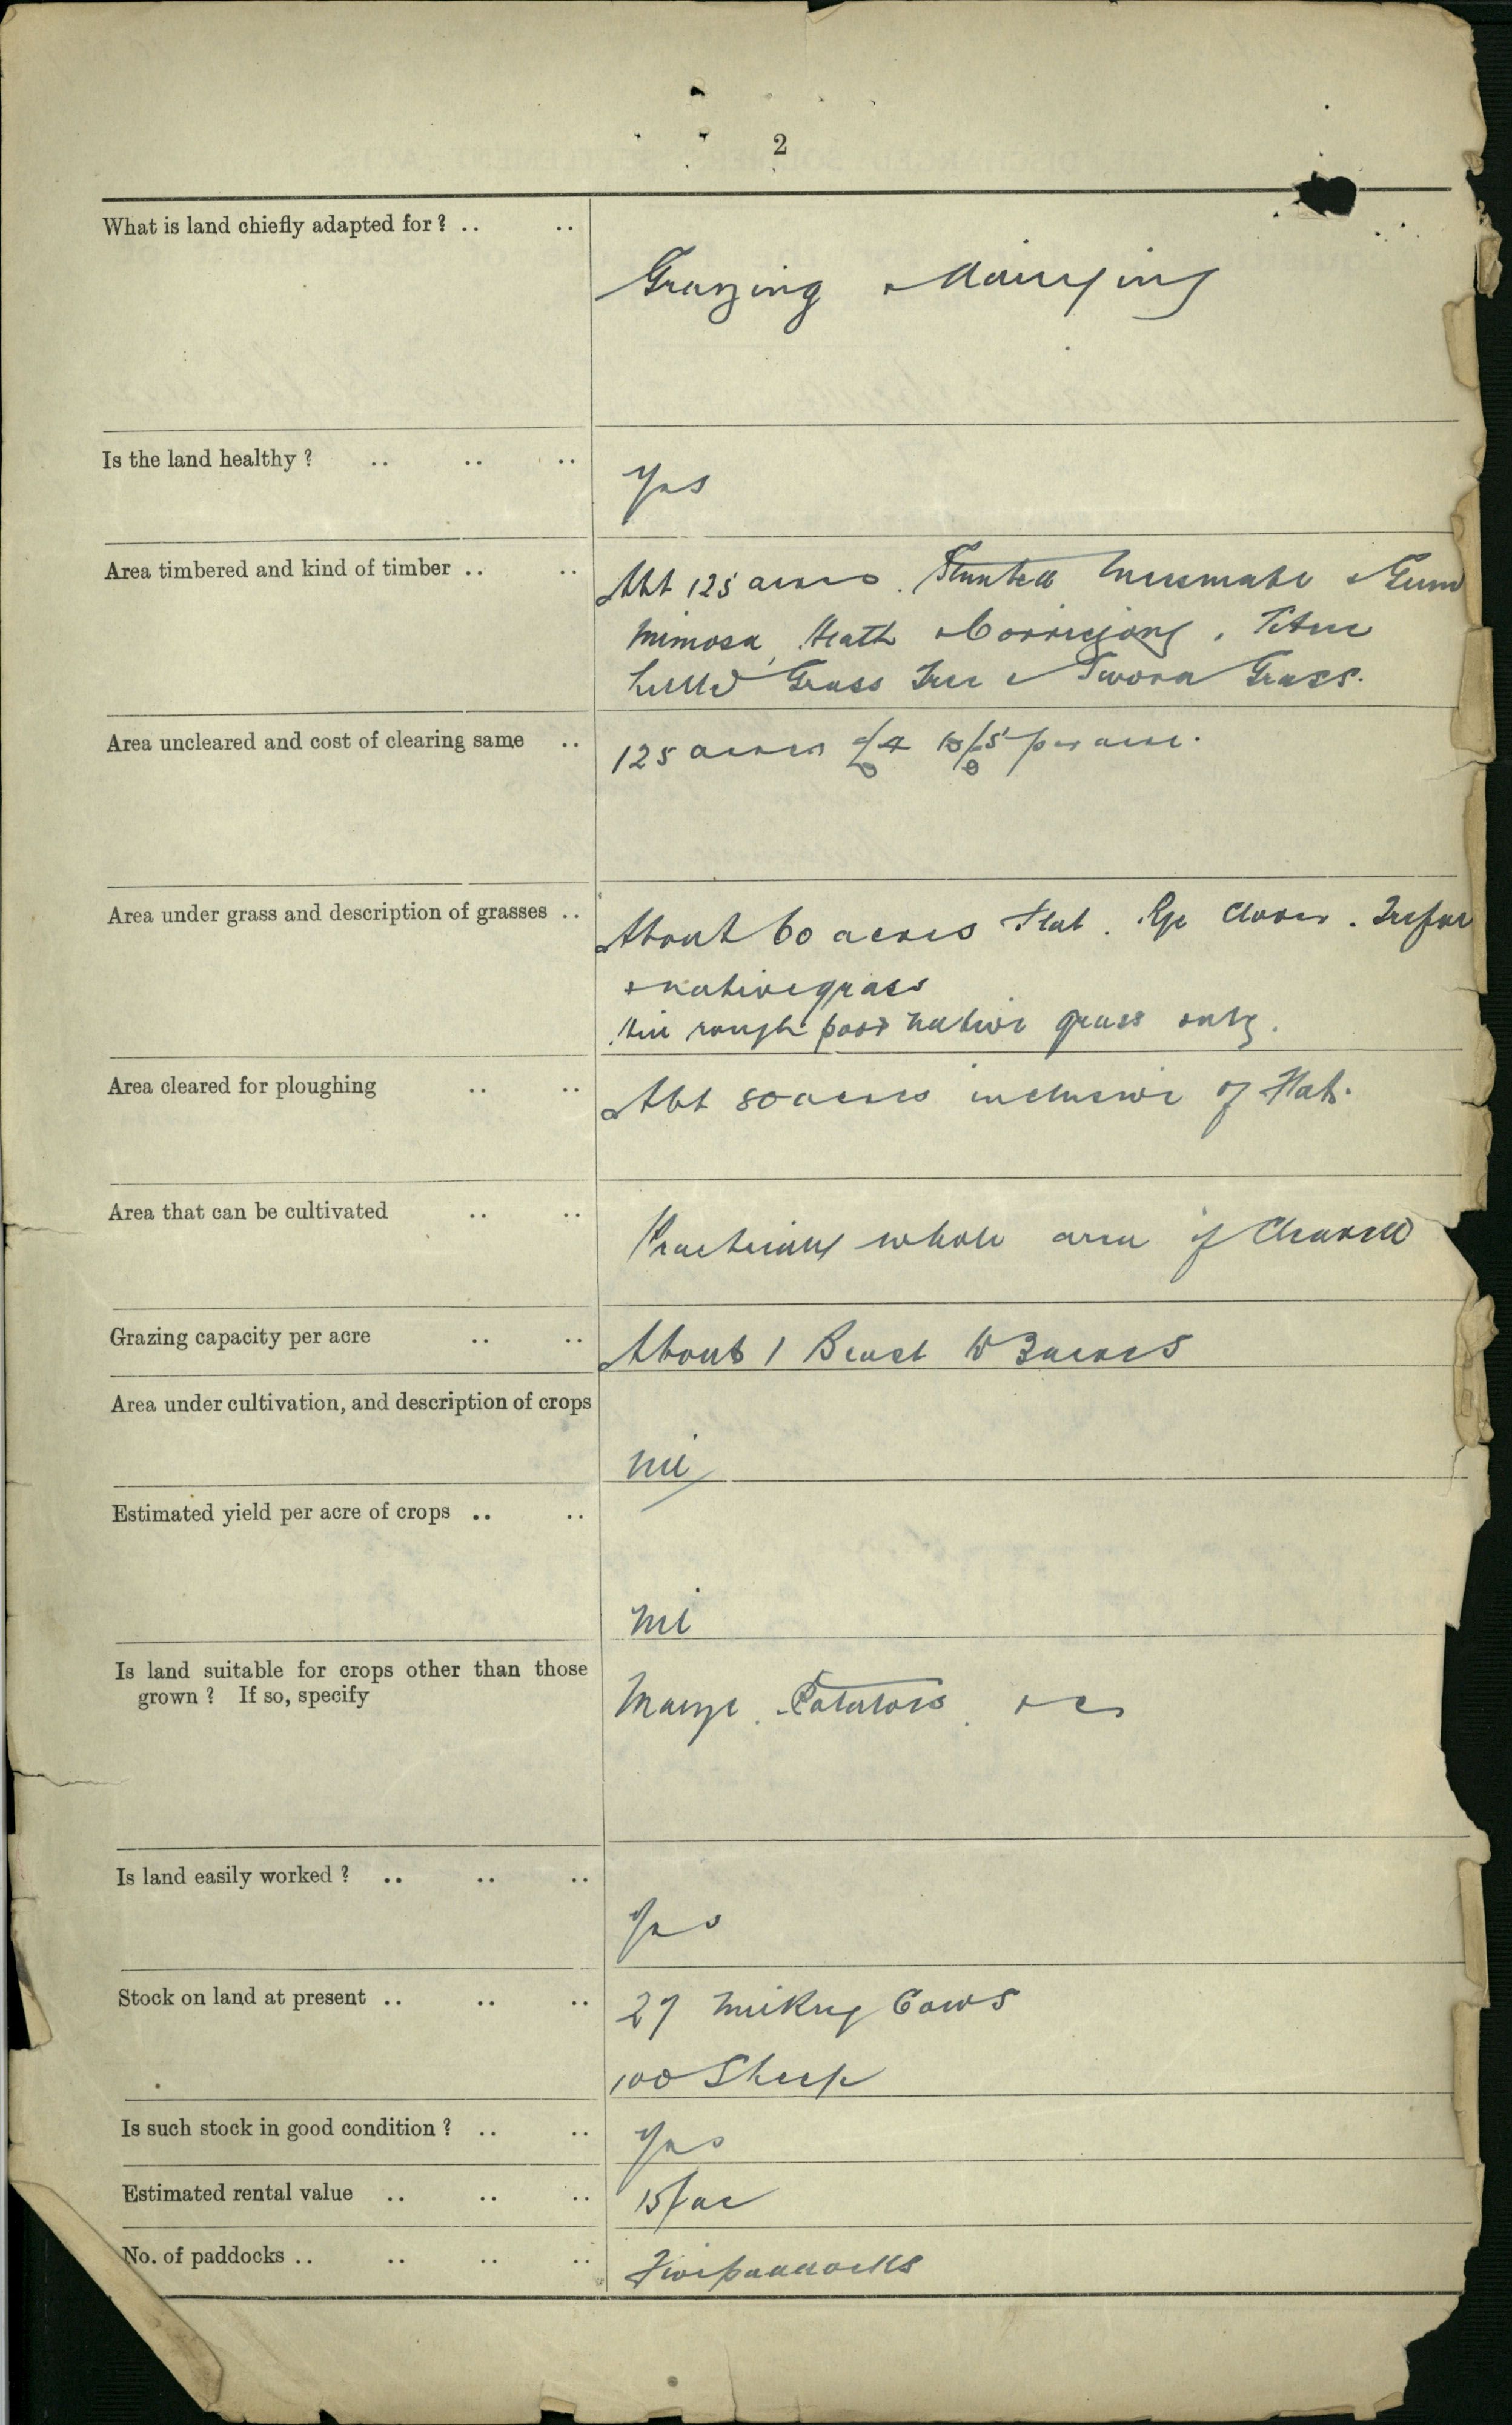 2
What is land chiefly adapted for ? .. ..
Grazing & Dairying
Is the land healthy ? .. .. ..
Yes
Area timbered and kind of timber .. ..
Abt 125 acres. Stunted Messmate & Gum
Mimosa, Heath & Corrigiong, Titree
Grass Tree & Grass.
Area uncleared and cost of clearing same ..
125 acres £4 to £5 per acre.
Area under grass and description of grasses ..
About 60 acres Flat. Rye Clover. Trefoil
& native grass
rough poor native grass only.
Area cleared for ploughing .. ..
Abt 80 acres inclusive of Flat.
Area that can be cultivated .. ..
Practically whole area if Cleared
Grazing capacity per acre .. ..
About 1 Beast to 3 acres
Area under cultivation, and description of crops
Nil
Estimated yield per acre of crops .. ..
Nil
Is land suitable for crops other than those
grown ? If so, specify
Mayze. Potatoes. &c
Is land easily worked ? .. .. ..
Yes
Stock on land at present .. .. ..
27 Milking Cows
100 Sheep
Is such stock in good condition ? .. ..
Yes
Estimated rental value .. .. ..
15/ ac
No. of paddocks .. .. .. ..
Five paddocks